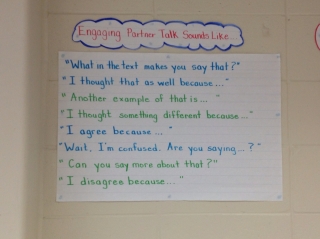 Engaging Partner Talk Sounds Like...
"What in the text makes you say that?"
"I thought that as well because..."
"Another example of that is... "
"I thought something different because..."
"I agree because... "
"Wait, I'm confused. Are you saying...?"
"Can you say more about that?"
"I disagree because... "